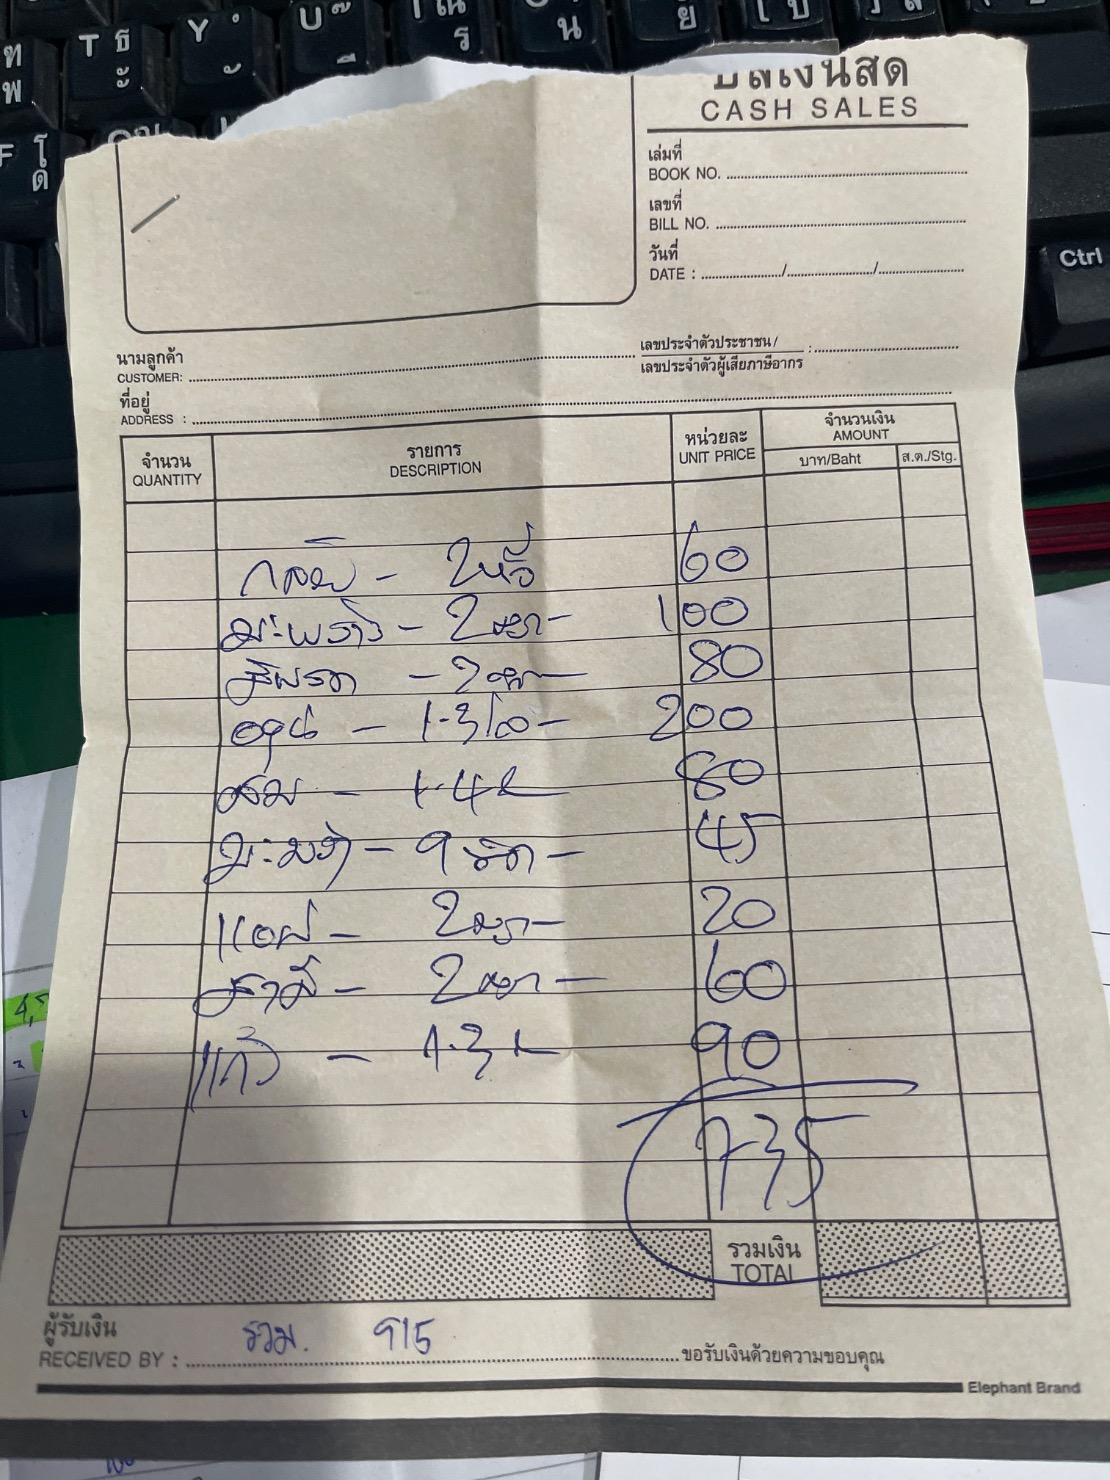 บิลเงินสด
CASH SALES
เล่มที่
BOOK NO.
เลขที่
BILL NO.
วันที่
DATE : / /
นามลูกค้า
CUSTOMER:
เลขประจำตัวประชาชน/
เลขประจำตัวผู้เสียภาษีอากร :
ที่อยู่
ADDRESS :
จำนวน
QUANTITY
รายการ
DESCRIPTION
หน่วยละ
UNIT PRICE
จำนวนเงิน
AMOUNT
บาท/Baht
ส.ต./Stg.
- 2 หวี 60
มะพร้าว - 2 ลูก - 100
- 2 ลูก - 80
องุ่น - 1.3 โล - 200
ส้ม - 1.4 80
- 9 45
แอปเปิ้ล - 2 ลูก - 20
สาลี่ - 2 ลูก - 60
แก้ว - 1.3 90
735
รวมเงิน
TOTAL
ผู้รับเงิน
RECEIVED BY : รวม. 915
ขอรับเงินด้วยความขอบคุณ
Elephant Brand
T ธ
Y
U
Ctrl